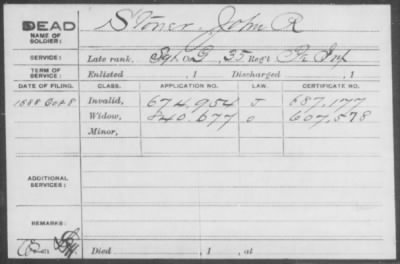 DEAD
NAME OF SOLDIER: Stoner, John R
SERVICE: Late rank, Sgt Co G, 35 Reg't Pa Inf
TERM OF SERVICE: Enlisted , 1 Discharged , 1
DATE OF FILING. CLASS. APPLICATION NO. LAW. CERTIFICATE NO.
1888 Invalid, 674,954 J 687,177
Widow, 840,677 O 607,578
Minor,
ADDITIONAL SERVICES:
REMARKS:
Died , 1 , at